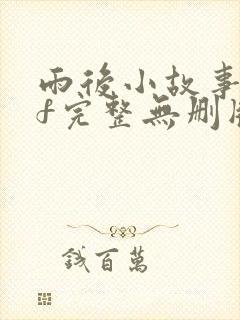 雨後小故事
f完整無刪
錢百萬